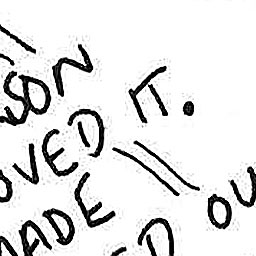 SON
OVED IT.
MADE
ED OU